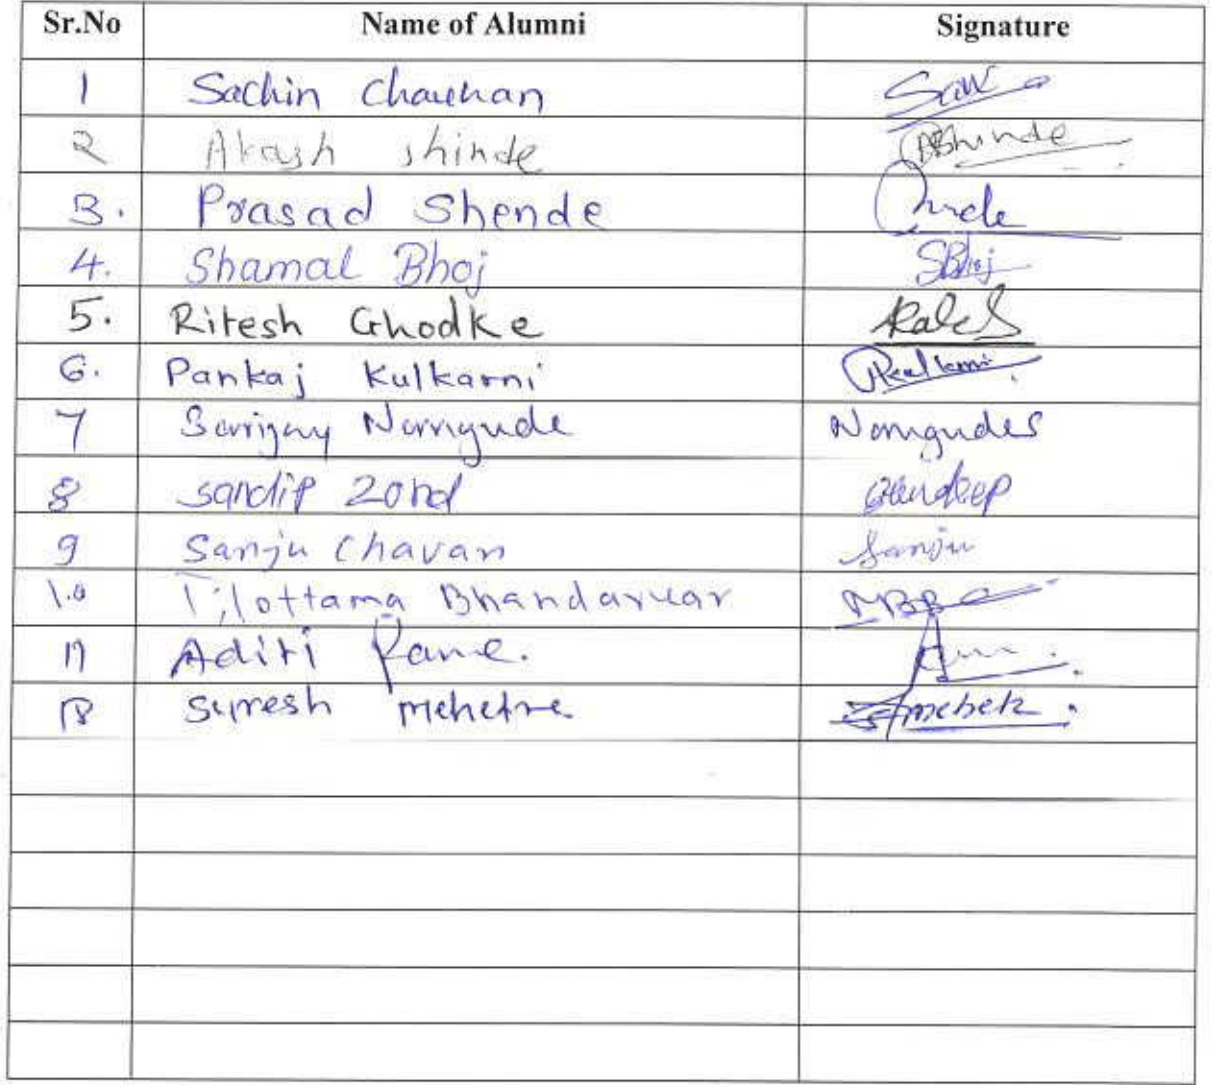 Sr.No Name of Alumni Signature
1 Sachin Chauhan
2 Akash Shinde ABShinde
3. Prasad Shende
4. Shamal Bhoj SBhoj
5. Ritesh Ghodke
6. Pankaj Kulkarni PKulkarni
7 Namgude Namgudes
8 Sandip Zond Sandeep
9 Sanju Chavan Sanju
10 Tilottama Bhandarkar
11 Aditi Rane.
12 Suresh Mehetre